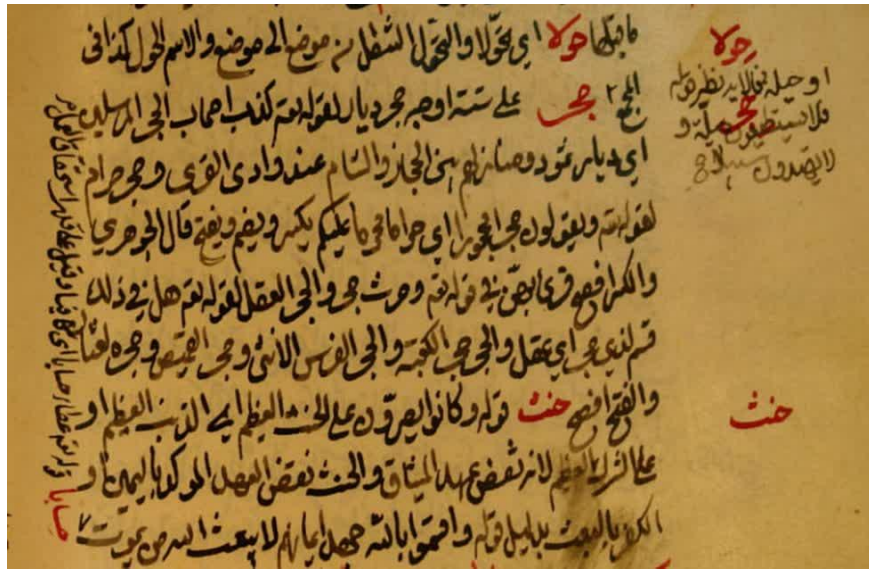 ما قبلها حولا اي تحولا والتحول التنقل من موضع الى موضع والاسم الحول كذا في
حجر على ستة اوجه حجر ديار لقوله تعم كذب اصحاب الحجر المرسلين
اي ديار ثمود ومنازلهم بين الحجاز والشام عند وادى القرى وحجر حرام
لقوله تعم ويقولون حجرا محجورا اي حراما محرما عليكم يكسر ويضم ويفتح قال الجوهري
والكسر افصح وقرئ بهن في قوله تعم وحرث حجر والحجر العقل لقوله تعم هل في ذلك
قسم لذي حجر اي عقل والحجر حجر الكعبة والحجر الفرس الانثى وحجر القميص وحجره لغتان
والفتح افصح حنث قوله وكانوا يصرون على الحنث العظيم اي الذنب العظيم او
على الشرك العظيم لانه نقض عهد الميثاق والحنث نقض العهد الموكد باليمين او
الكفر بالبعث بدليل قوله واقسموا بالله جهد ايمانهم لا يبعث الله من يموت
حولا
او حيلة
حجر
فلا يستطيعون حيلة و
لا يهتدون سبيلا
حنث
حسابا قوله تعم عطاء حسابا اي كافيا وقيل على قدر